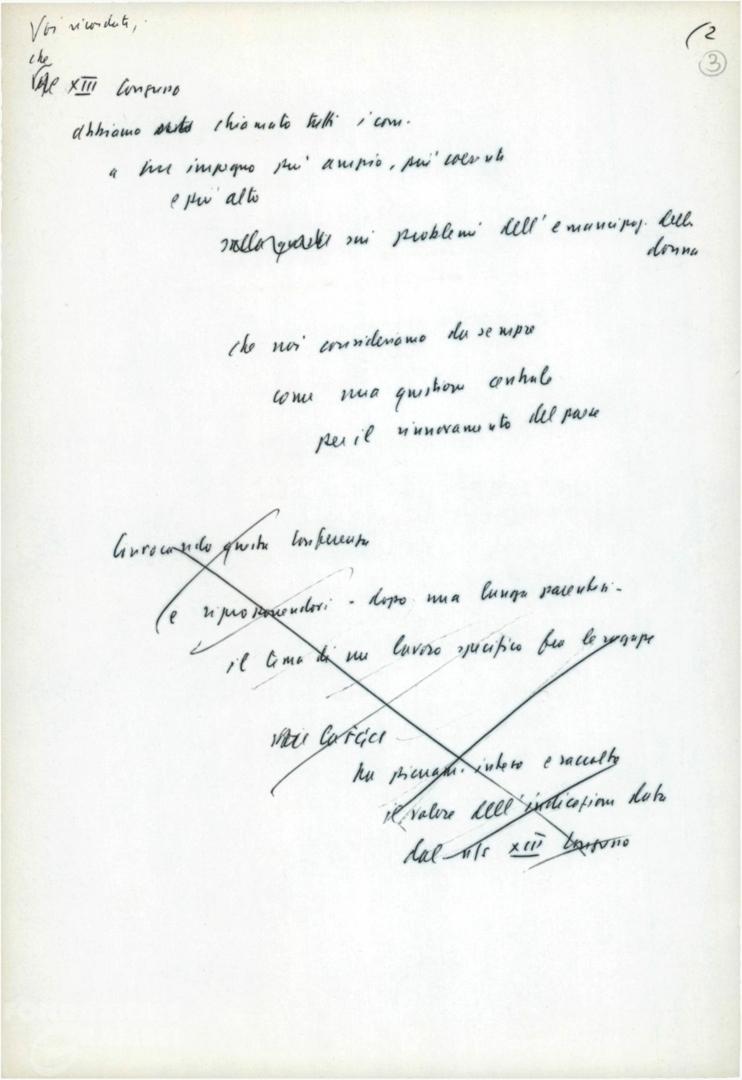 Voi ricordate,
che
al XIII Congresso
(2
3
abbiamo chiamato tutti i com.
a un impegno più ampio, più coerente
e più alto
sui problemi dell'emancipaz. della
donna
che noi consideriamo da sempre
come una questione centrale
per il rinnovamento del paese
Convocando questa Conferenza
e riproponendoci - dopo una lunga parentesi -
il tema di un lavoro specifico fra le ragazze
la FGCI
ha pienam. inteso e raccolto
il valore dell'indicazione data
dal ns XIII Congresso